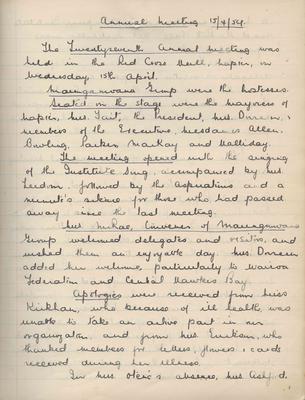 Annual Meeting 15/4/59.
The Twentyseventh Annual meeting was
held in the Red Cross Hall, Napier, on
Wednesday, 15th April.
Maungawana Group were the hostesses.
Seated on the stage were the mayoress of
Napier, Mrs. Tait, the President, Mrs. &
members of the Executive, Mesdames Allen,
Bowling, Larsen, MacKay and Halliday.
The meeting opened with the singing
of the Institute Song, accompanied by Mrs.
followed by the Aspirations and a
minute's silence for those who had passed
away since the last meeting.
Mrs. McRae, Convener of
Group welcomed delegates and visitors, and
wished them an enjoyable day. Mrs.
added her welcome, particularly to Wairoa
Federation and Central Hawkes Bay.
Apologies were received from Miss
Kirkham, who because of ill health, was
unable to take an active part in our
organization, and from Mrs. Erikson, who
thanked members for letters, flowers & cards
received during her illness.
In Mrs. absence, Mrs.